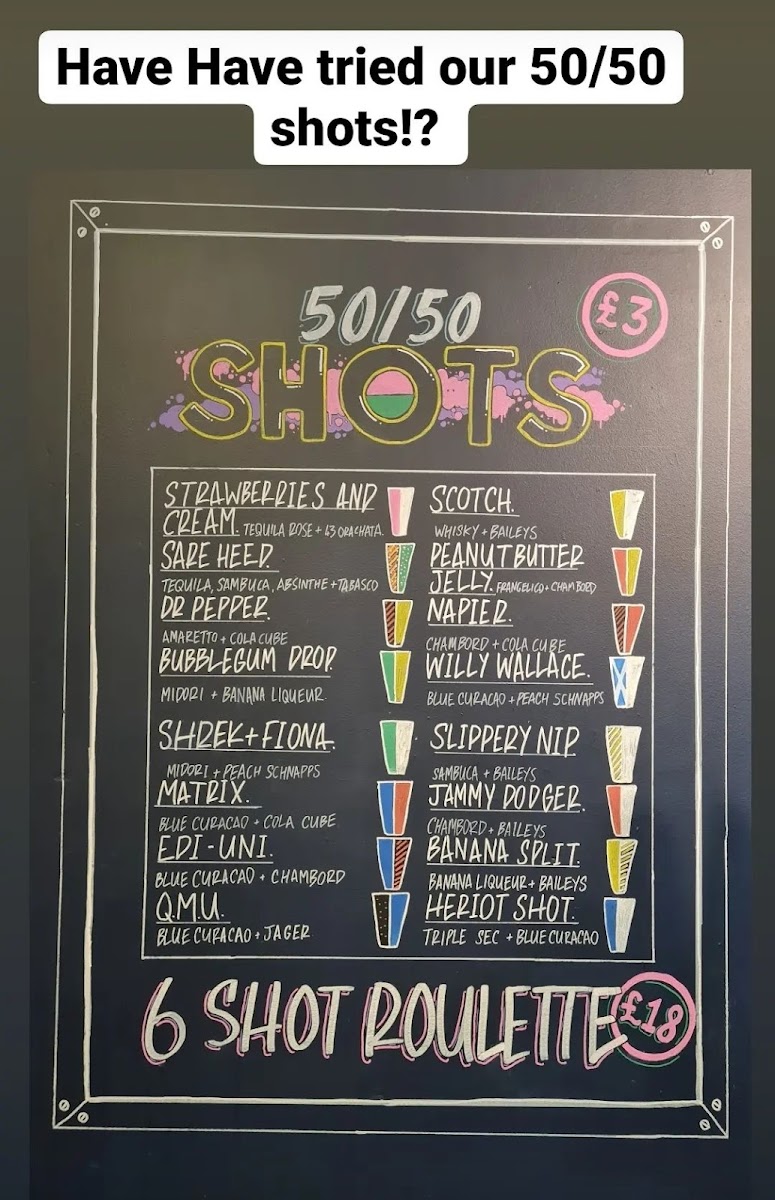 Have Have tried our 50/50
shots!?
50/50
£3
SHOTS
STRAWBERRIES AND
CREAM. TEQUILA ROSE + 43 ORACHATA.
SARE HEED.
TEQUILA, SAMBUCA, ABSINTHE + TABASCO
DR PEPPER.
AMARETTO + COLA CUBE
BUBBLEGUM DROP.
MIDORI + BANANA LIQUEUR
SHREK + FIONA.
MIDORI + PEACH SCHNAPPS
MATRIX.
BLUE CURACAO + COLA CUBE
EDI-UNI.
BLUE CURACAO + CHAMBORD
Q.M.U.
BLUE CURACAO + JAGER
SCOTCH.
WHISKY + BAILEYS
PEANUT BUTTER
JELLY. FRANGELICO + CHAMBORD
NAPIER.
CHAMBORD + COLA CUBE
WILLY WALLACE.
BLUE CURAÇAO + PEACH SCHNAPPS
SLIPPERY NIP.
SAMBUCA + BAILEYS
JAMMY DODGER.
CHAMBORD + BAILEYS
BANANA SPLIT.
BANANA LIQUEUR + BAILEYS
HERIOT SHOT.
TRIPLE SEC + BLUE CURACAO
6 SHOT ROULETTE £18